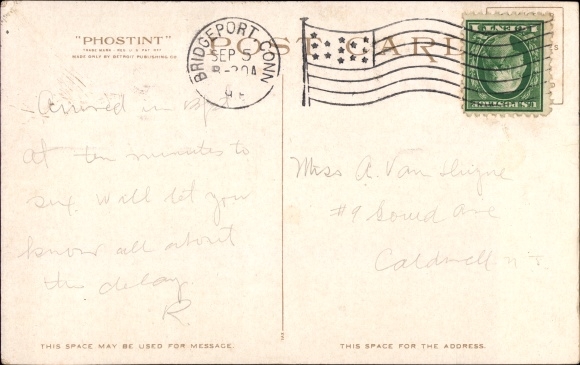 "PHOSTINT"
TRADE MARK REG. U.S. PAT. OFF.
MADE ONLY BY DETROIT PUBLISHING CO.
POST CARD
BRIDGEPORT, CONN
SEP 5
8-30A
Arrived in
at ten minutes to
six. Will let you
know all about
the delay.
R.
Miss A. Van
#9 Gould Ave
Caldwell N J.
THIS SPACE MAY BE USED FOR MESSAGE.
THIS SPACE FOR THE ADDRESS.
U.S. POSTAGE